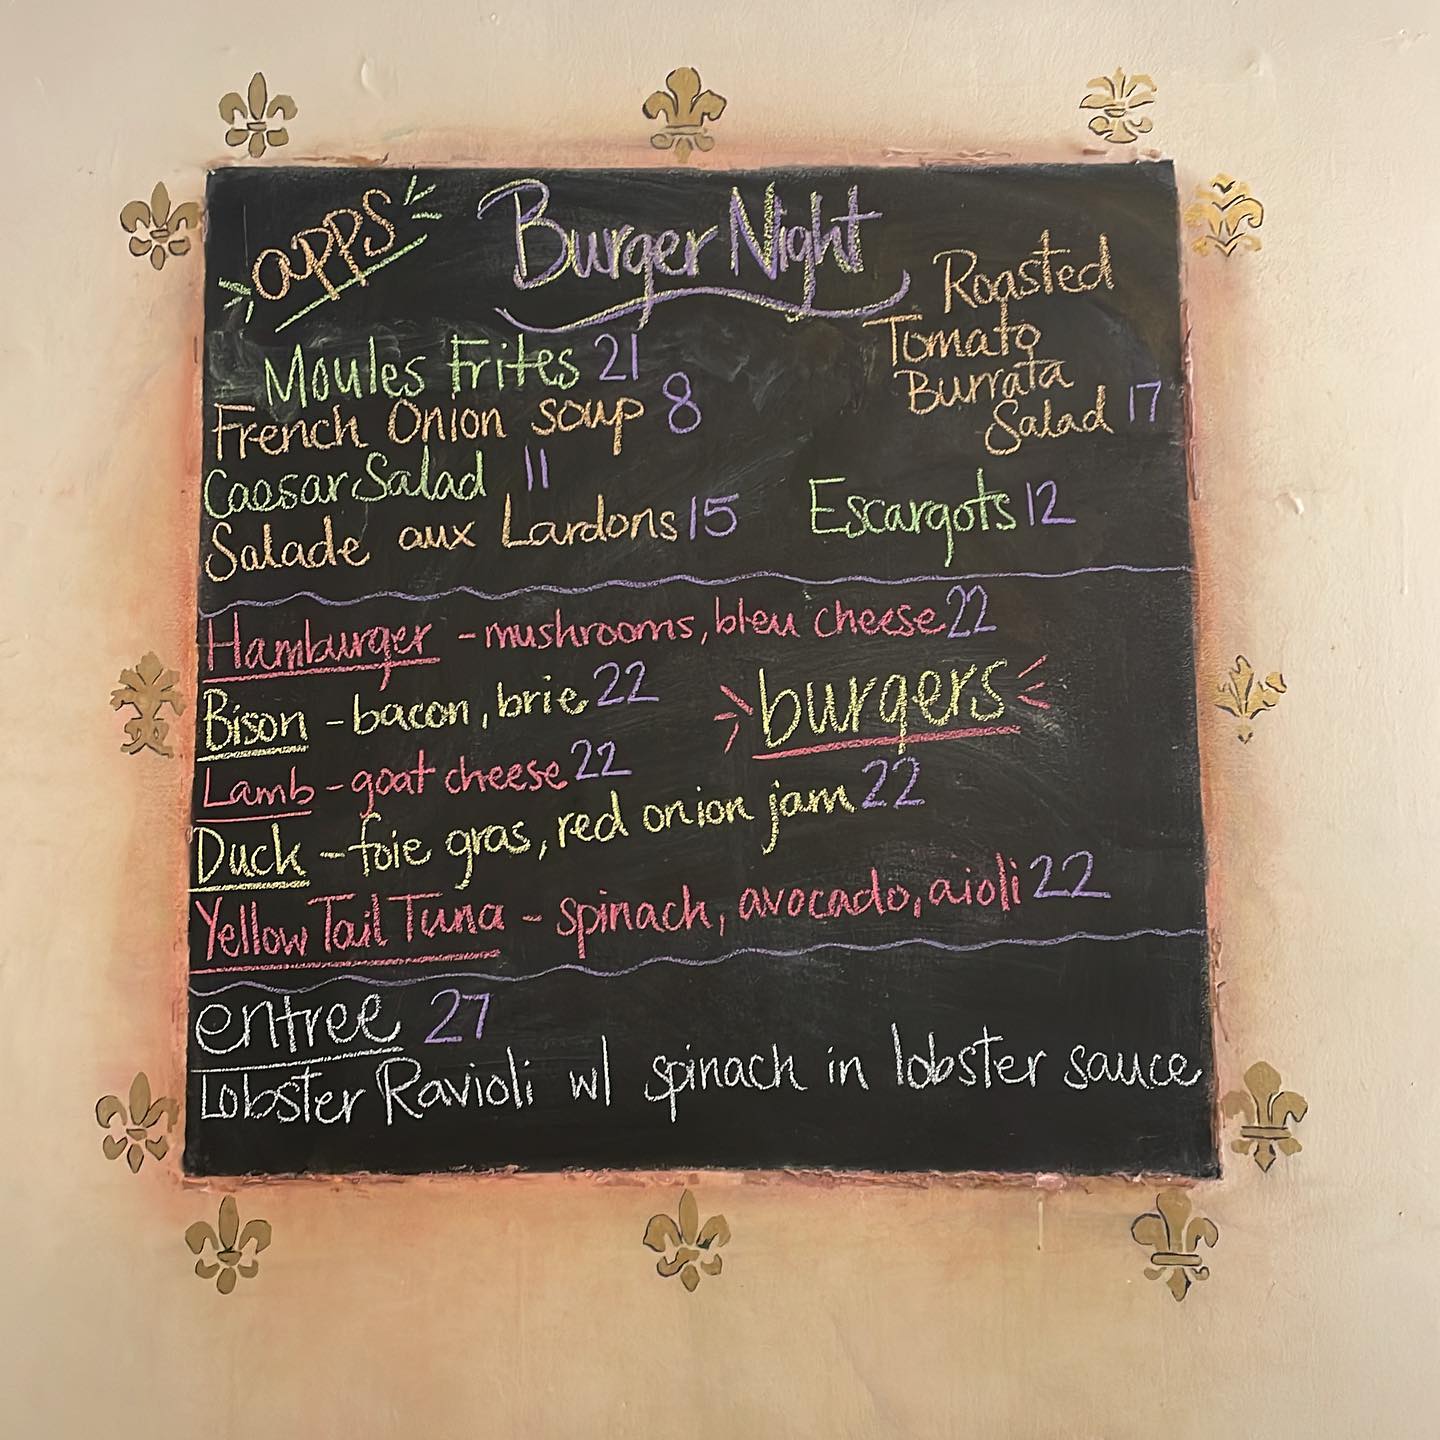 apps
Burger Night
Moules Frites 21
French Onion soup 8
Caesar Salad 11
Salade aux Lardons 15
Roasted
Tomato
Burrata
Salad 17
Escargots 12
Hamburger - mushrooms, bleu cheese 22
Bison - bacon, brie 22
burgers
Lamb - goat cheese 22
Duck - foie gras, red onion jam 22
Yellow Tail Tuna - spinach, avocado, aioli 22
entree 27
Lobster Ravioli w/ spinach in lobster sauce